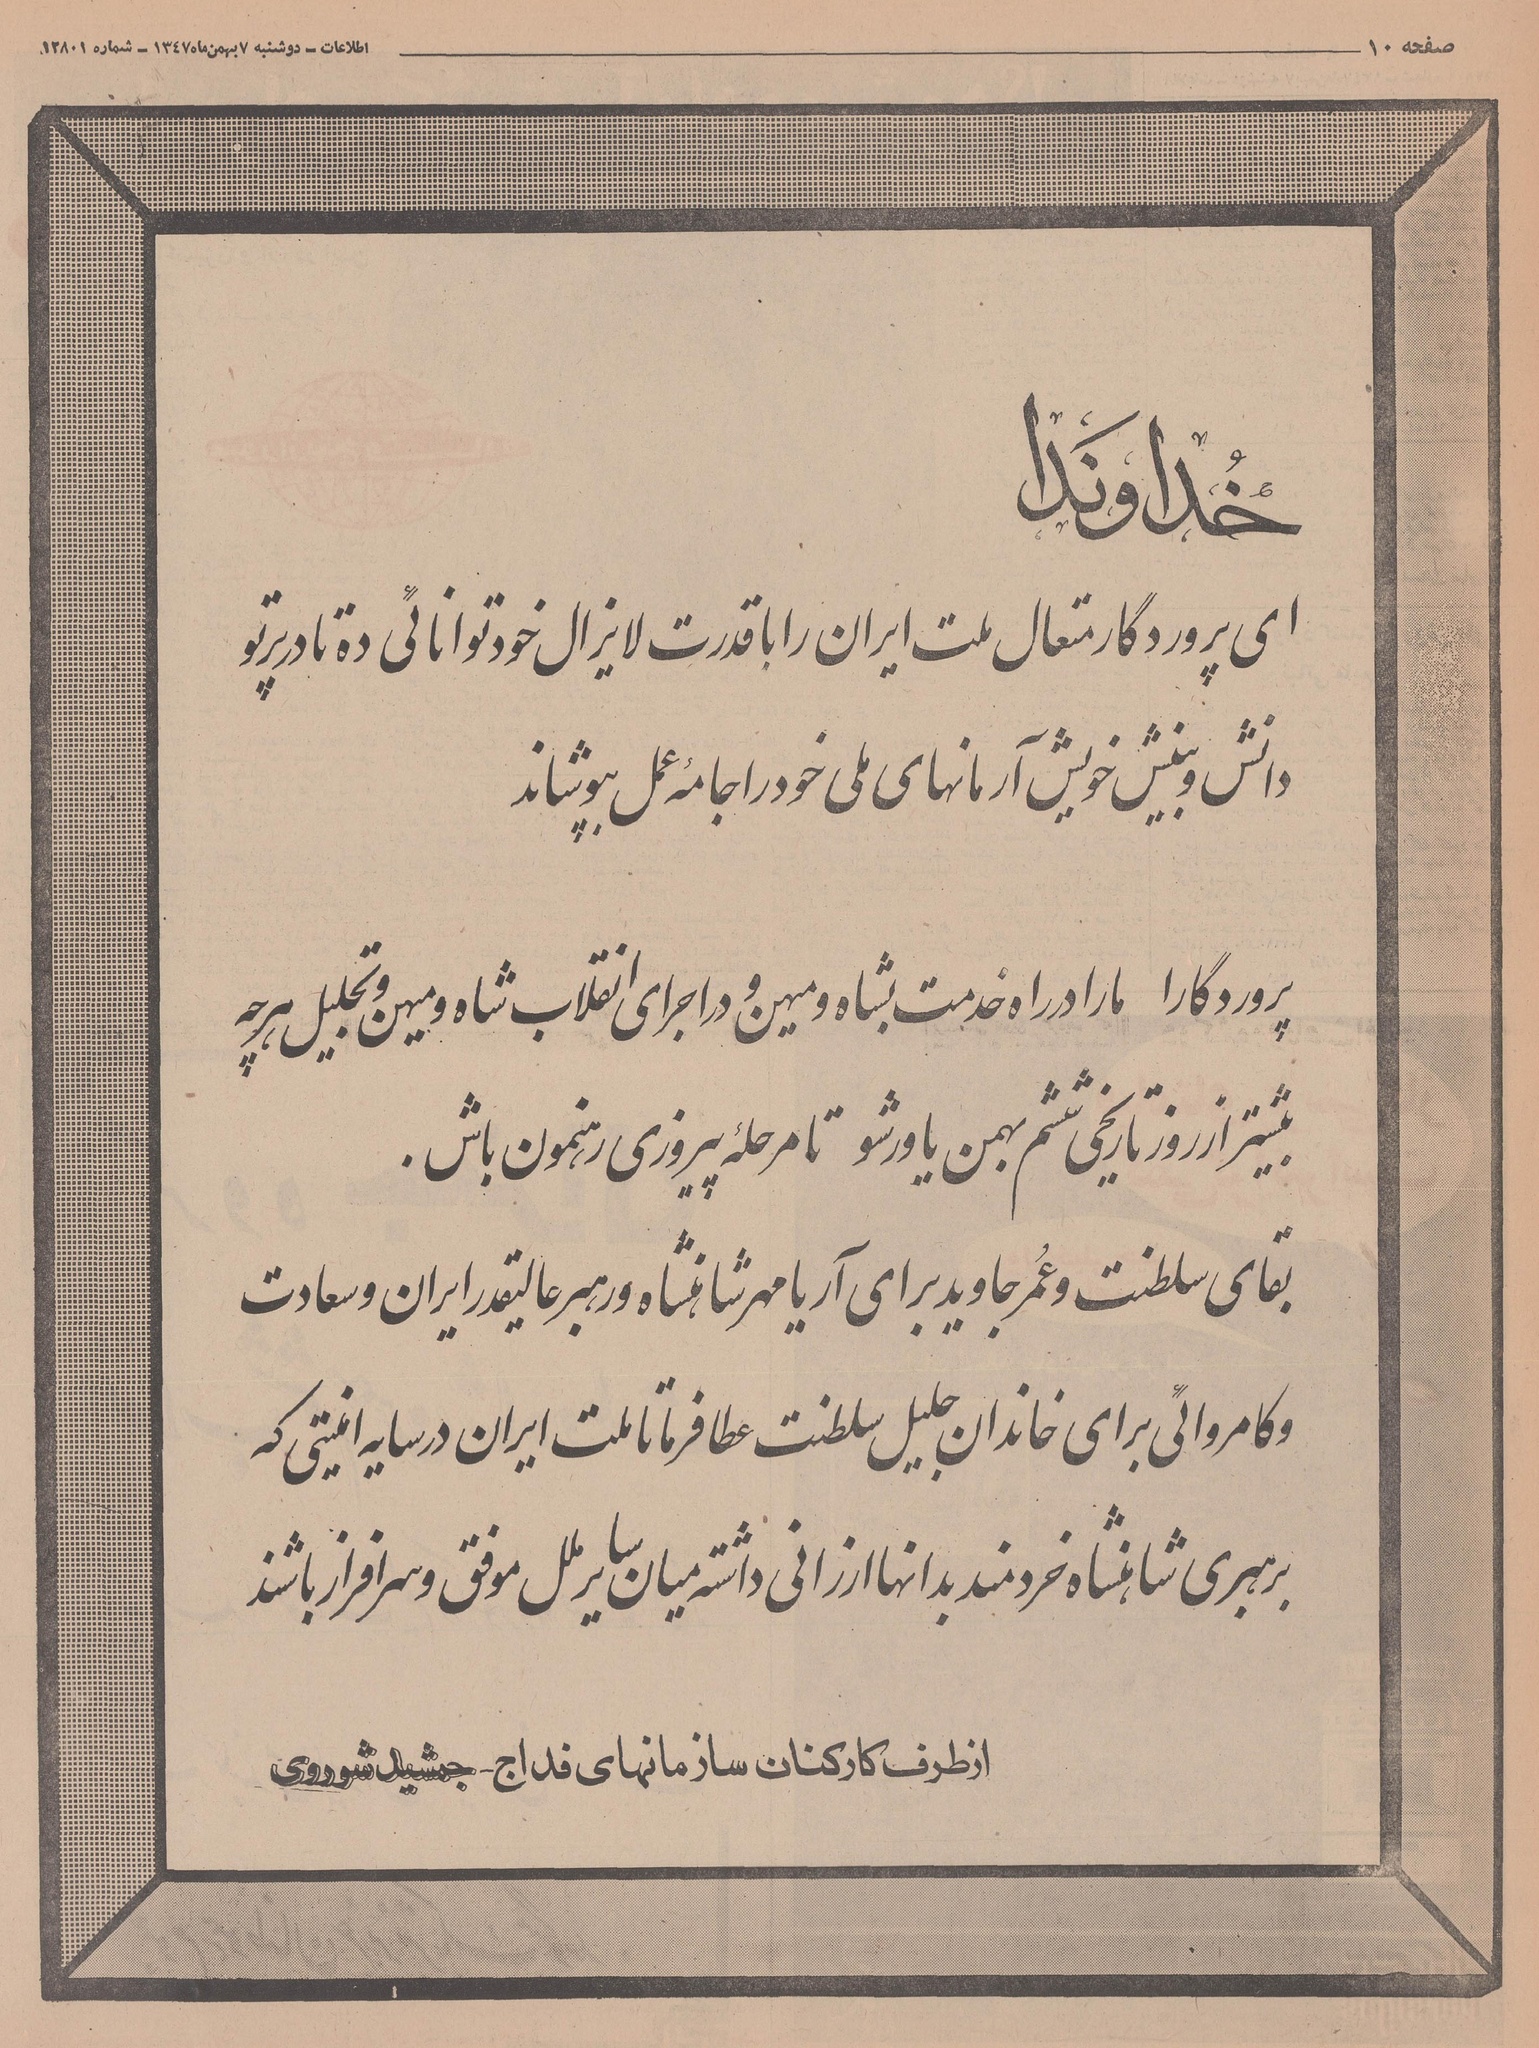 صفحه ۱۰
اطلاعات ــ دوشنبه ۷ بهمن ماه ۱۳۴۷ ــ شماره ۱۲۸۰۱
خُداوندَا
ای پروردگار متعال ملت ایران را با قدرت لایزال خود توانائی ده تا در پرتو
دانش و بینش خویش آرمانهای ملی خود را جامهٔ عمل بپوشاند
پروردگارا ما را در راه خدمت بشاه و میهن و در اجرای انقلاب شاه و میهن و تجلیل هرچه
بیشتر از روز تاریخی ششم بهمن یاور شو تا مرحلهٔ پیروزی رهنمون باش .
بقای سلطنت و عُمر جاوید برای آریامهر شاهنشاه و رهبر عالیقدر ایران و سعادت
و کامروائی برای خاندان جلیل سلطنت عطا فرما تا ملت ایران در سایه امنیتی که
برهبری شاهنشاه خردمند بدانها ارزانی داشته میان سایر ملل موفق و سرافراز باشند
از طرف کارکنان سازمانهای فداج - جمشید شوروی